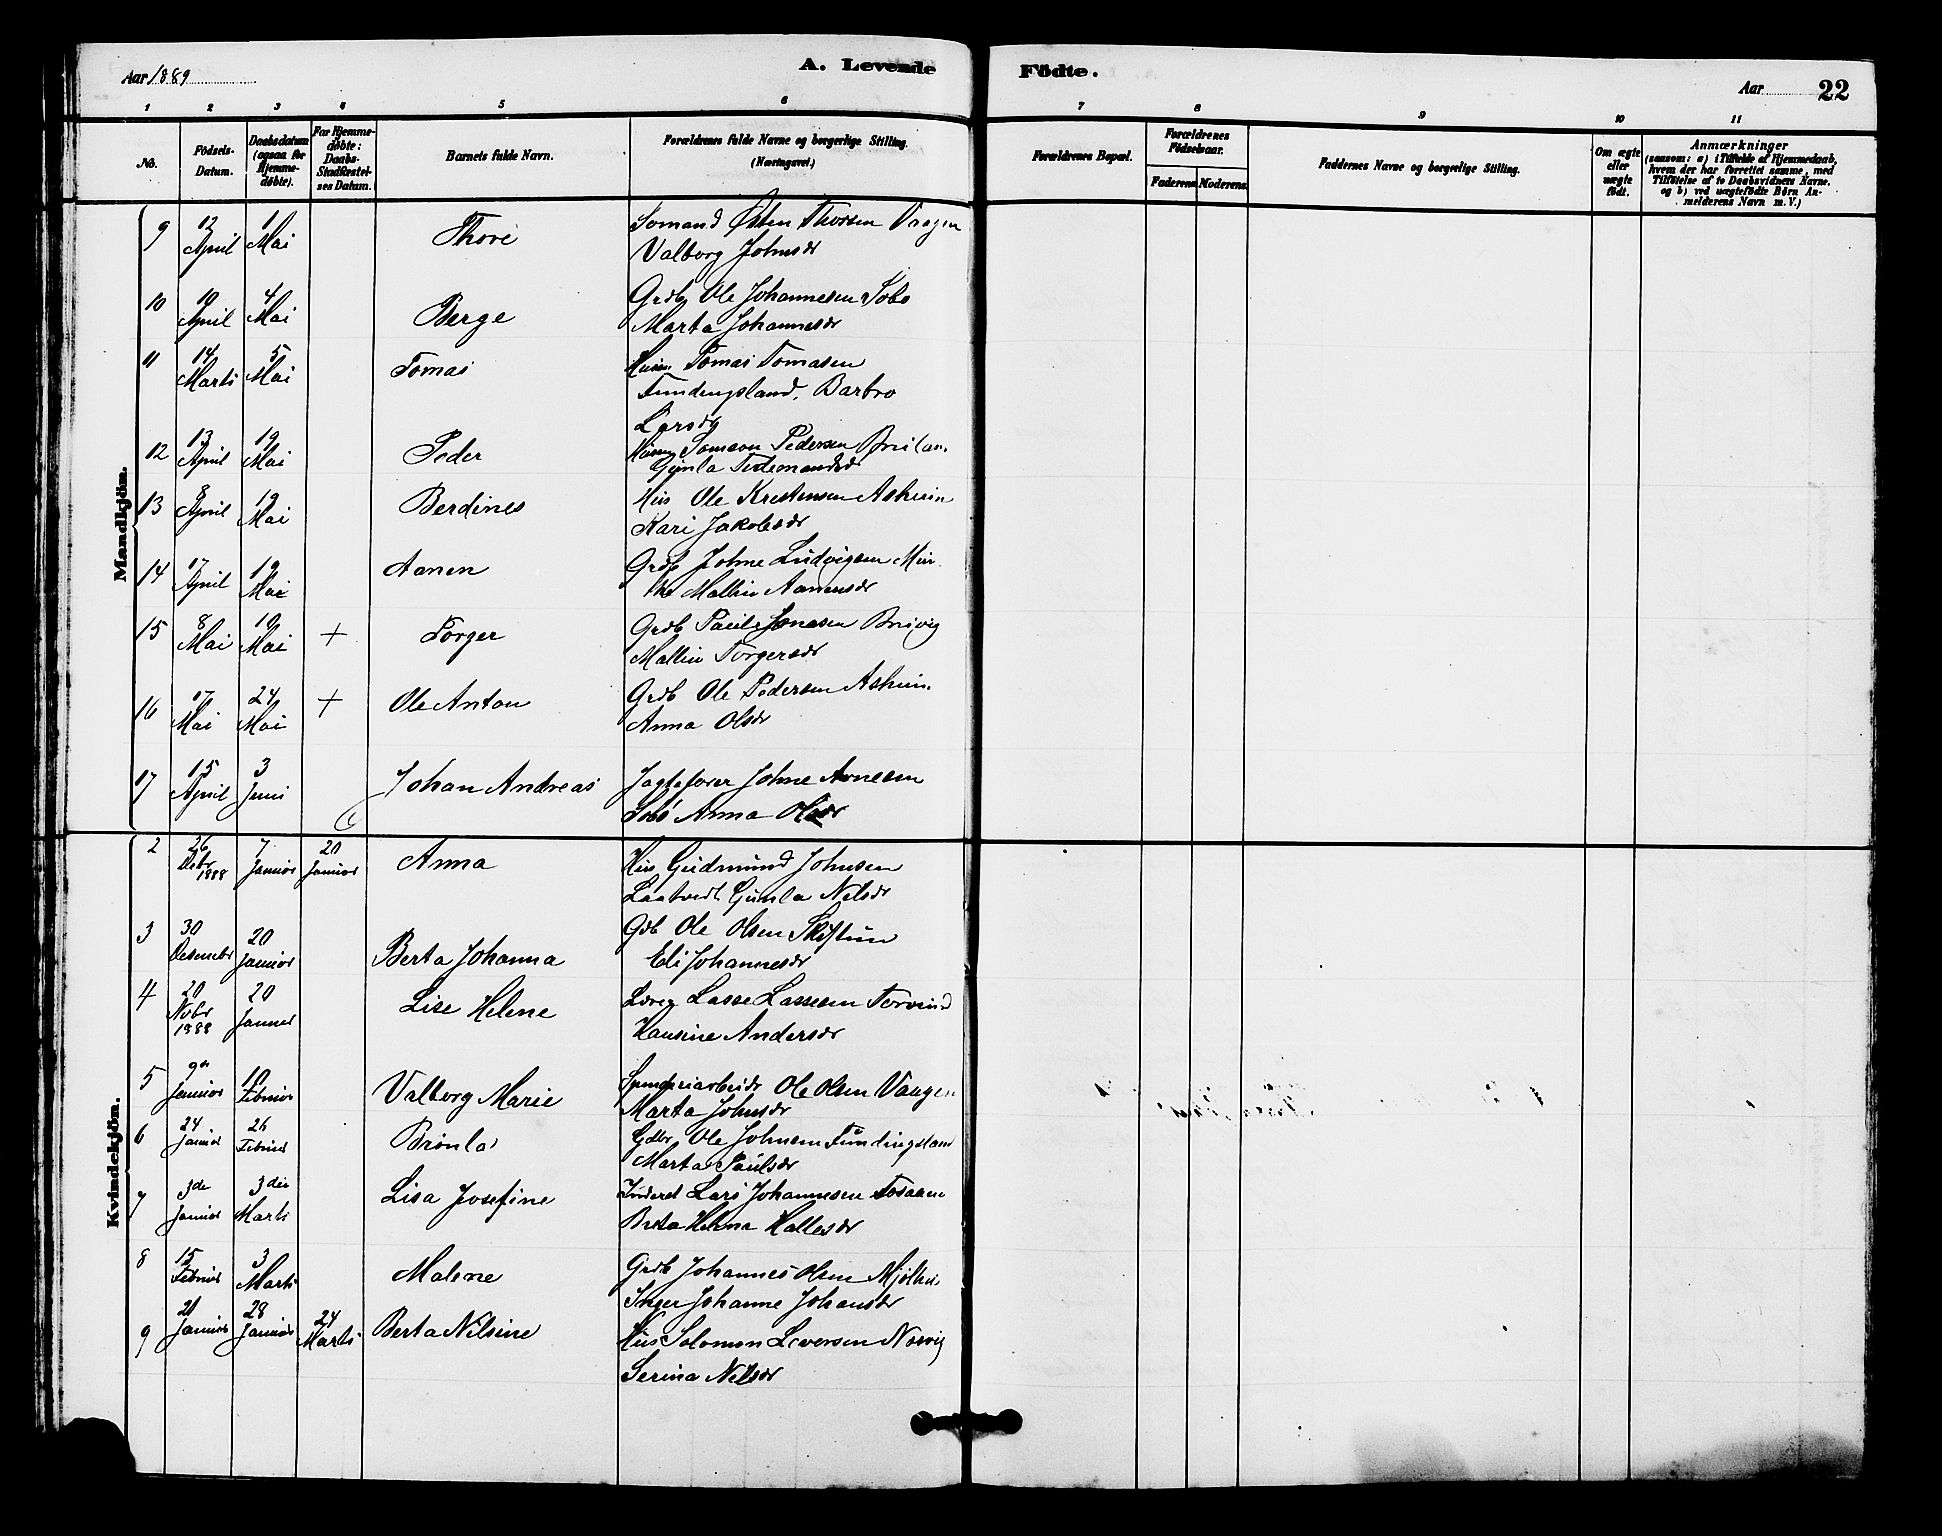 Aar 1889
A. Levende
Födte.
Aar 22
1 2 3 4 5 6 7 8 9 10 11
No.
Födsels-
Datum.
Daabsdatum
(ogsaa for
Hjemme-
døbte).
For Hjemme-
døbte:
Daabs-
Stadfæstel-
ses Datum.
Barnets fulde Navn.
Forældrenes fulde Navne og borgerlige Stilling.
(Næringsvei.)
Forældrenes Bopæl.
Forældrenes
Födselsaar.
Faderens Moderens
Faddernes Navne og borgerlige Stilling.
Om ægte
eller
uægte
født.
Anmærkninger
(saasom: a) i Tilfælde af Hjemmedaab,
hvem der har forrettet samme, med
Tilföielse af to Daabsvidners Navne,
og b) ved uægtefødte Börn An-
melderens Navn m. V.)
Mandkjön.
9 12 April 1 Mai Thore Sömand Østen Thorsen Vaagen
Valborg Johnsdr
10 10 April 4 Mai Berge Grdb Ole Johannesen Søbø
Marta Johannesdr
11 14 Marts 5 Mai Tomas Husm Tomas Tomasen
Fundingsland, Barbro
Larsdr
12 13 April 19 Mai Peder Husm Samson Pedersen
Gunla Tedemandsdr
13 8 April 19 Mai Berdines Hus Ole Kristensen Askvin
Kari Jakobsdr
14 17 April 19 Mai Aanen Grdb Johne Ludvigsen
Mallin Aanensdr
15 8 Mai 19 Mai + Torger Grdb Paul Jonasen
Mallin Torgersdr
16 17 Mai 24 Mai + Ole Anton Grdb Ole Pedersen Askvin
Anna Olsdr
17 15 April 3 Juni Johan Andreas Jagtefører Johne Arnesen
Søbø Anna Olsdr
Kvindekjön.
2 26 Decbr 1888 7 Januar 20 Januar Anna Hus Gudmund Johnsen
Laatvedt Gunla Nilsdr
3 30 Desember 20 Januar Berta Johanna Gdb Ole Olsen Skiftun
Eli Johannesdr
4 20 Novbr 1888 20 Januar Lise Helene Lasse Lassesen Torvund
Hansine Andersdr
5 9de Januar 10 Februar Valborg Marie Ole Olsen Vaagen
Marta Johnsdr
6 24 Januar 26 Februar Brønla Gdbr Ole Johnsen Fundingsland
Marta Paulsdr
7 3de Januar 3die Marts Lisa Josefine Inderst Lars Johannesen Fosaaen
Berta Helena Hallesdr
8 15 Februar 3 Marts Malene Grdb Johannes Olsen
Inger Johanne Johansdr
9 21 Januar 28 Januar 24 Marts Berta Nilsine Hus Solomon Leversen Nørvig
Serina Nilsdr